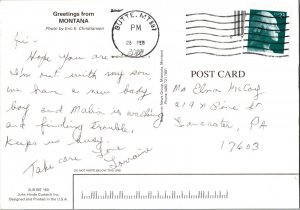 Greetings from
MONTANA
Photo by Eric E. Christensen
BUTTE, MT 597
PM
28 FEB
Hi -
Hope you are
I'm out with my son
We have a new baby
boy and Malia is walking
and finding trouble,
keeps us busy.
Take care Love
Lorraine
POST CARD
Ms Elma McCoy
219 N Pine St.
Lancaster, PA
17603
DO NOT WRITE BELOW THIS LINE
JUS INT 160
John Hinde Curteich Inc.
Designed and Printed in the U.S.A.